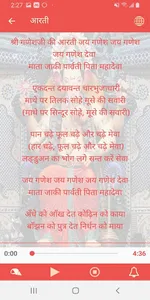 2:27
आरती
श्री गणेशजी की आरती जय गणेश जय गणेश
जय गणेश देवा
माता जाकी पार्वती पिता महादेवा
एकदन्त दयावन्त चारभुजाधारी
माथे पर तिलक सोहे, मूसे की सवारी
(माथे पर सिन्दूर सोहे, मूसे की सवारी)
पान चढ़े फूल चढ़े और चढ़े मेवा
(हार चढ़े, फूल चढ़े और चढ़े मेवा)
लड्डुअन का भोग लगे सन्त करें सेवा
जय गणेश जय गणेश जय गणेश देवा
माता जाकी पार्वती पिता महादेवा
अँधे को आँख देत कोढ़िन को काया
बाँझन को पुत्र देत निर्धन को माया
0:00
4:36